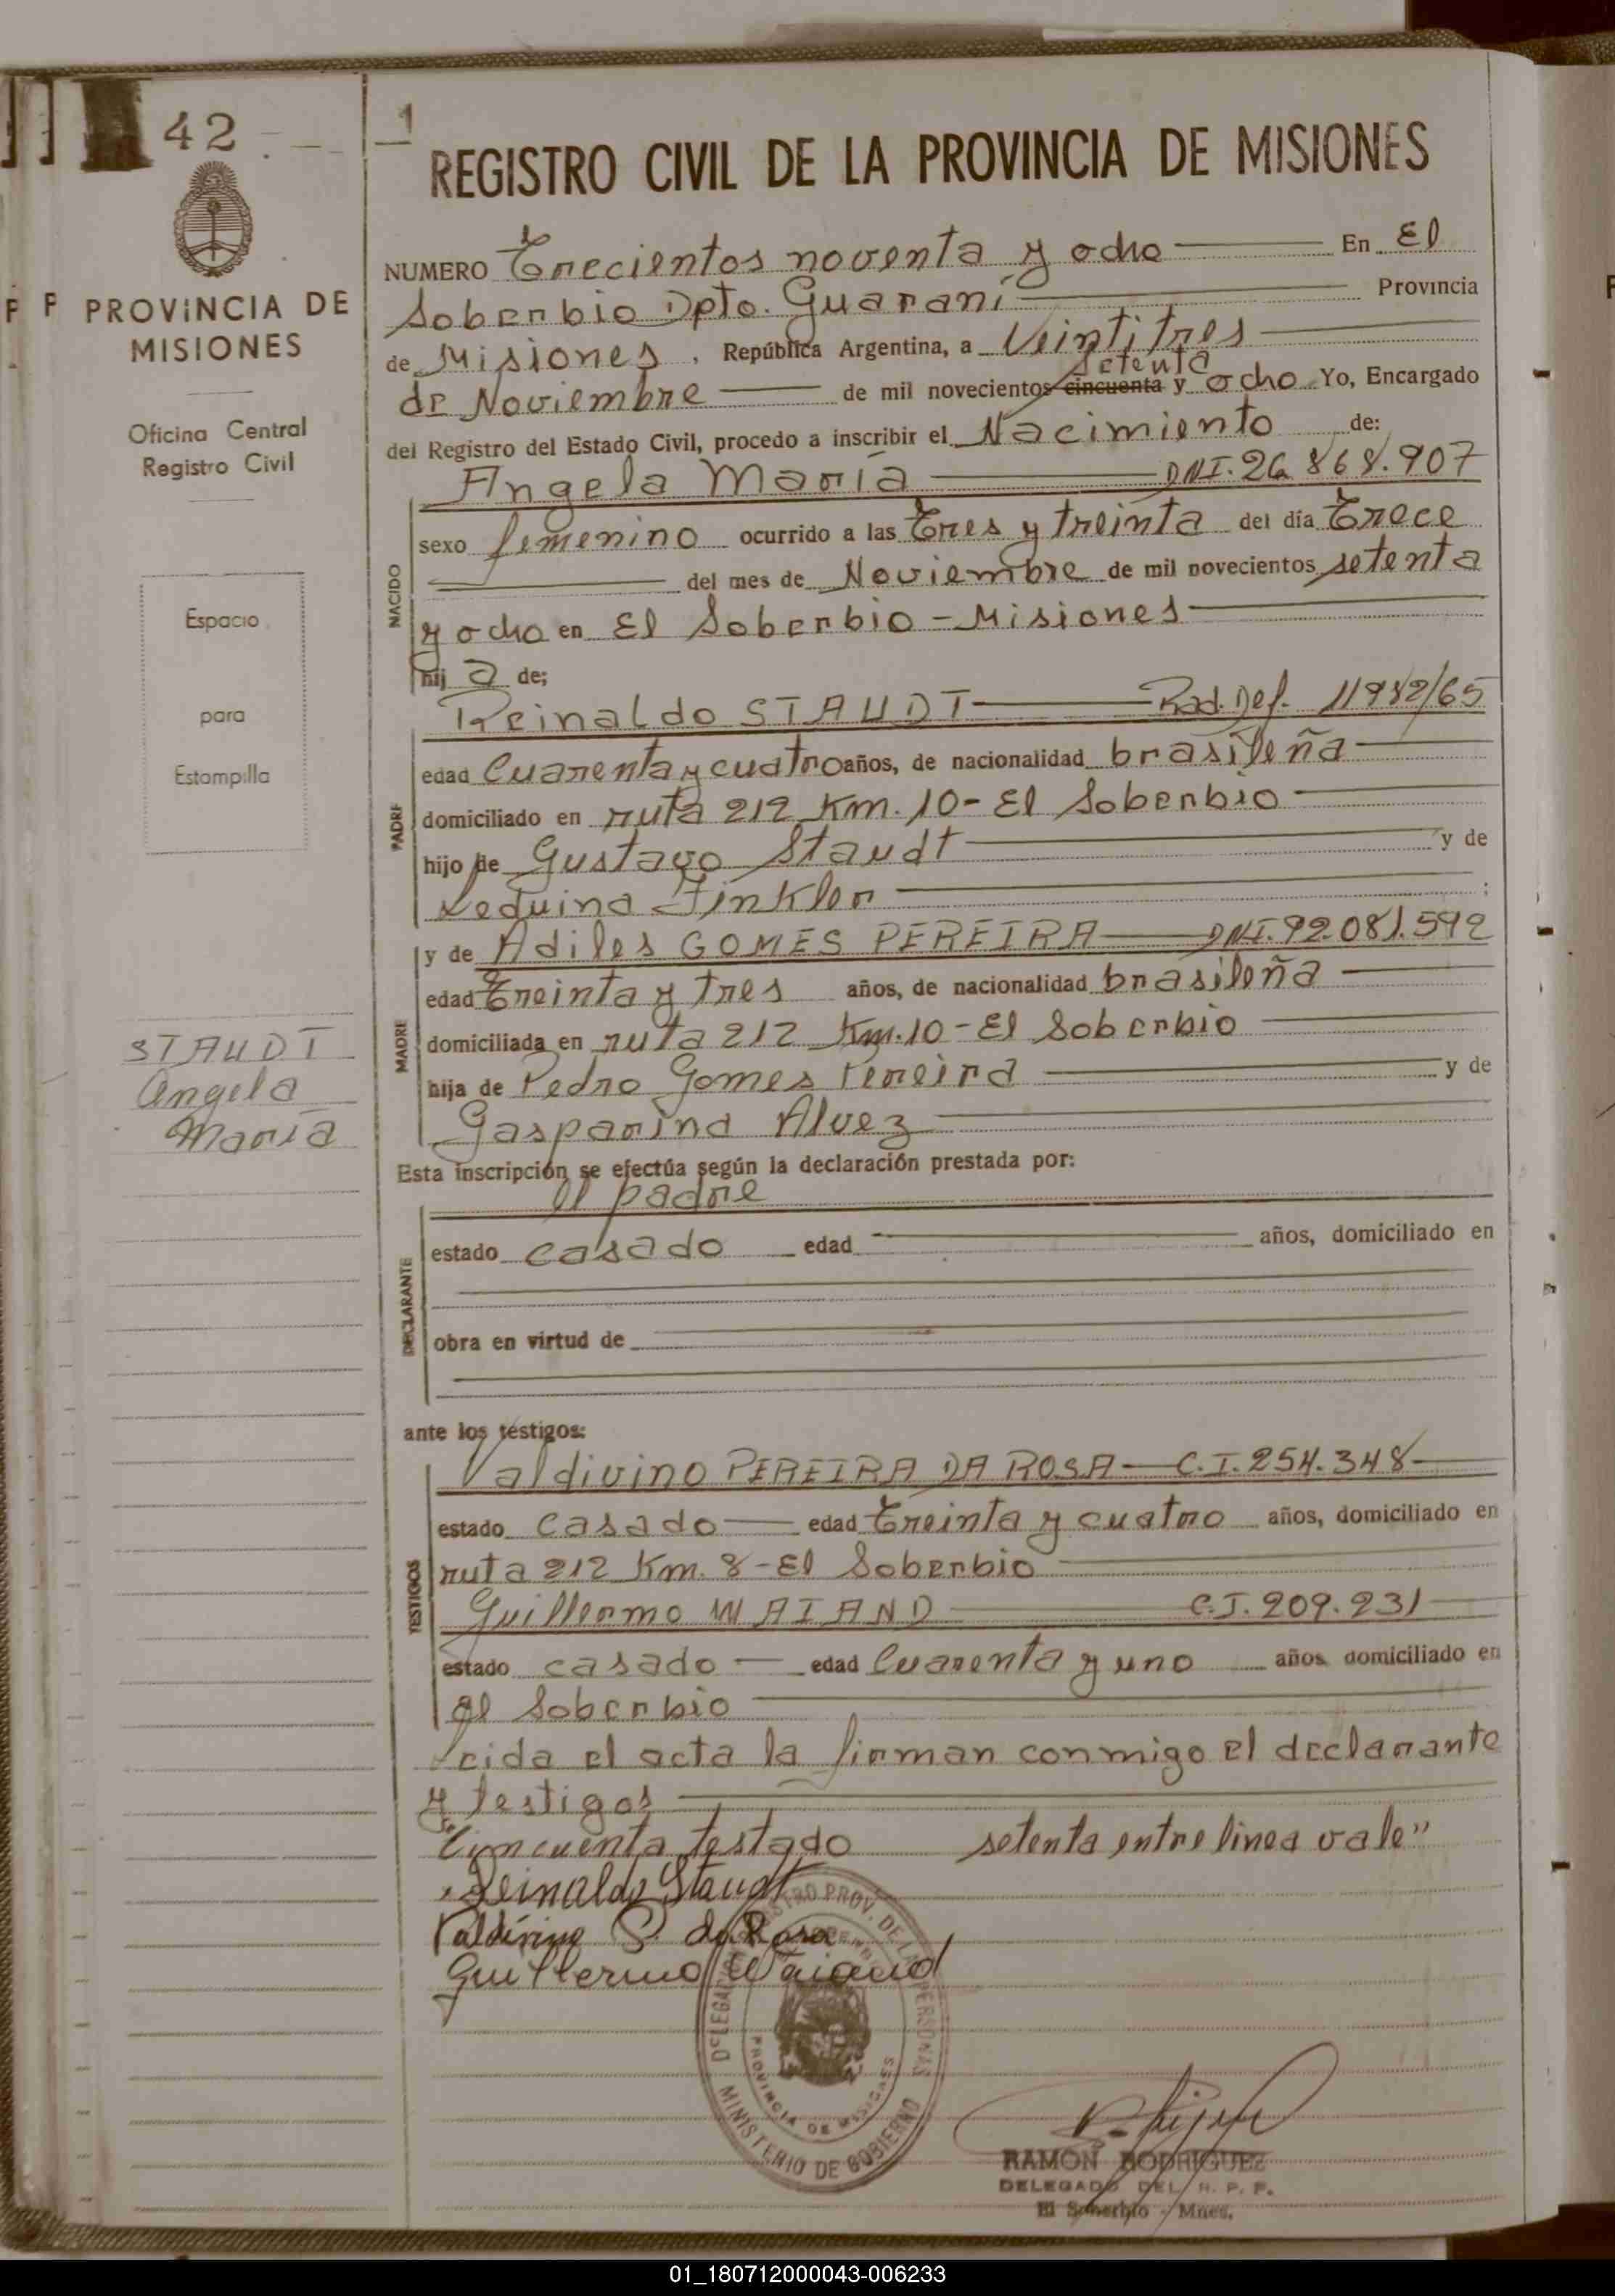 42
1
REGISTRO CIVIL DE LA PROVINCIA DE MISIONES
PROVINCIA DE
MISIONES
Oficina Central
Registro Civil
Espacio
para
Estampilla
STAUDT
Angela
María
NUMERO Trecientos noventa y ocho En El
Soberbio Dpto. Guaraní Provincia
de Misiones, República Argentina, a Veintitres
setenta
de Noviembre de mil novecientos cincuenta y ocho Yo, Encargado
del Registro del Estado Civil, procedo a inscribir el Nacimiento de:
Angela María DNI. 26.868.907
NACIDO
sexo femenino ocurrido a las Tres y treinta del día Trece
del mes de Noviembre de mil novecientos setenta
y ocho en El Soberbio - Misiones
hij a de;
PADRE
Reinaldo STAUDT Rad. Def. 11982/65
edad Cuarenta y cuatro años, de nacionalidad brasileña
domiciliado en ruta 212 Km. 10 - El Soberbio
hijo de Gustavo Staudt y de
Leduina Finkler ;
MADRE
y de Adiles GOMES PEREIRA DNI. 92.081.592
edad Treinta y tres años, de nacionalidad brasileña
domiciliada en ruta 212 Km. 10 - El Soberbio
hija de Pedro Gomes Pereira y de
Gasparina Alvez
Esta inscripción se efectúa según la declaración prestada por:
el padre
DECLARANTE
estado casado edad años, domiciliado en
obra en virtud de
ante los testigos:
TESTIGOS
Valdivino PEREIRA DA ROSA - C.I. 254.348
estado casado edad Treinta y cuatro años, domiciliado en
ruta 212 Km. 8 - El Soberbio
Guillermo WAIAND C.I. 209.231
estado casado edad Cuarenta y uno años domiciliado en
el Soberbio
Leida el acta la firman conmigo el declarante
y testigos
"Cincuenta testado setenta entre linea vale"
Reinaldo Staudt
Valdivino P. da Rosa
Guillermo Waiand
PROVINCIA DE MISIONES
MINISTERIO DE GOBIERNO
RAMON RODRIGUEZ
DELEGADO DEL R. P. P.
El Soberbio - Mnes.
01_180712000043-006233